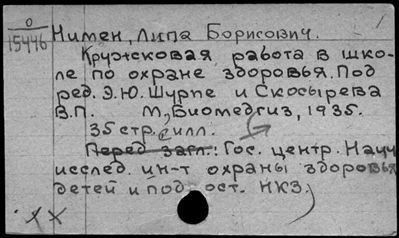 0
15446
Нимен, Липа Борисович.
Кружковая работа в шко-
ле по охране здоровья. Под
ред. Э.Ю. Шурпе и Скосырева
В.П. М., Биомедгиз, 1935.
35 стр. с илл.
Перед загл.: Гос. центр. Науч
исслед. ин-т охраны здоровья
детей и под. ост. НКЗ.